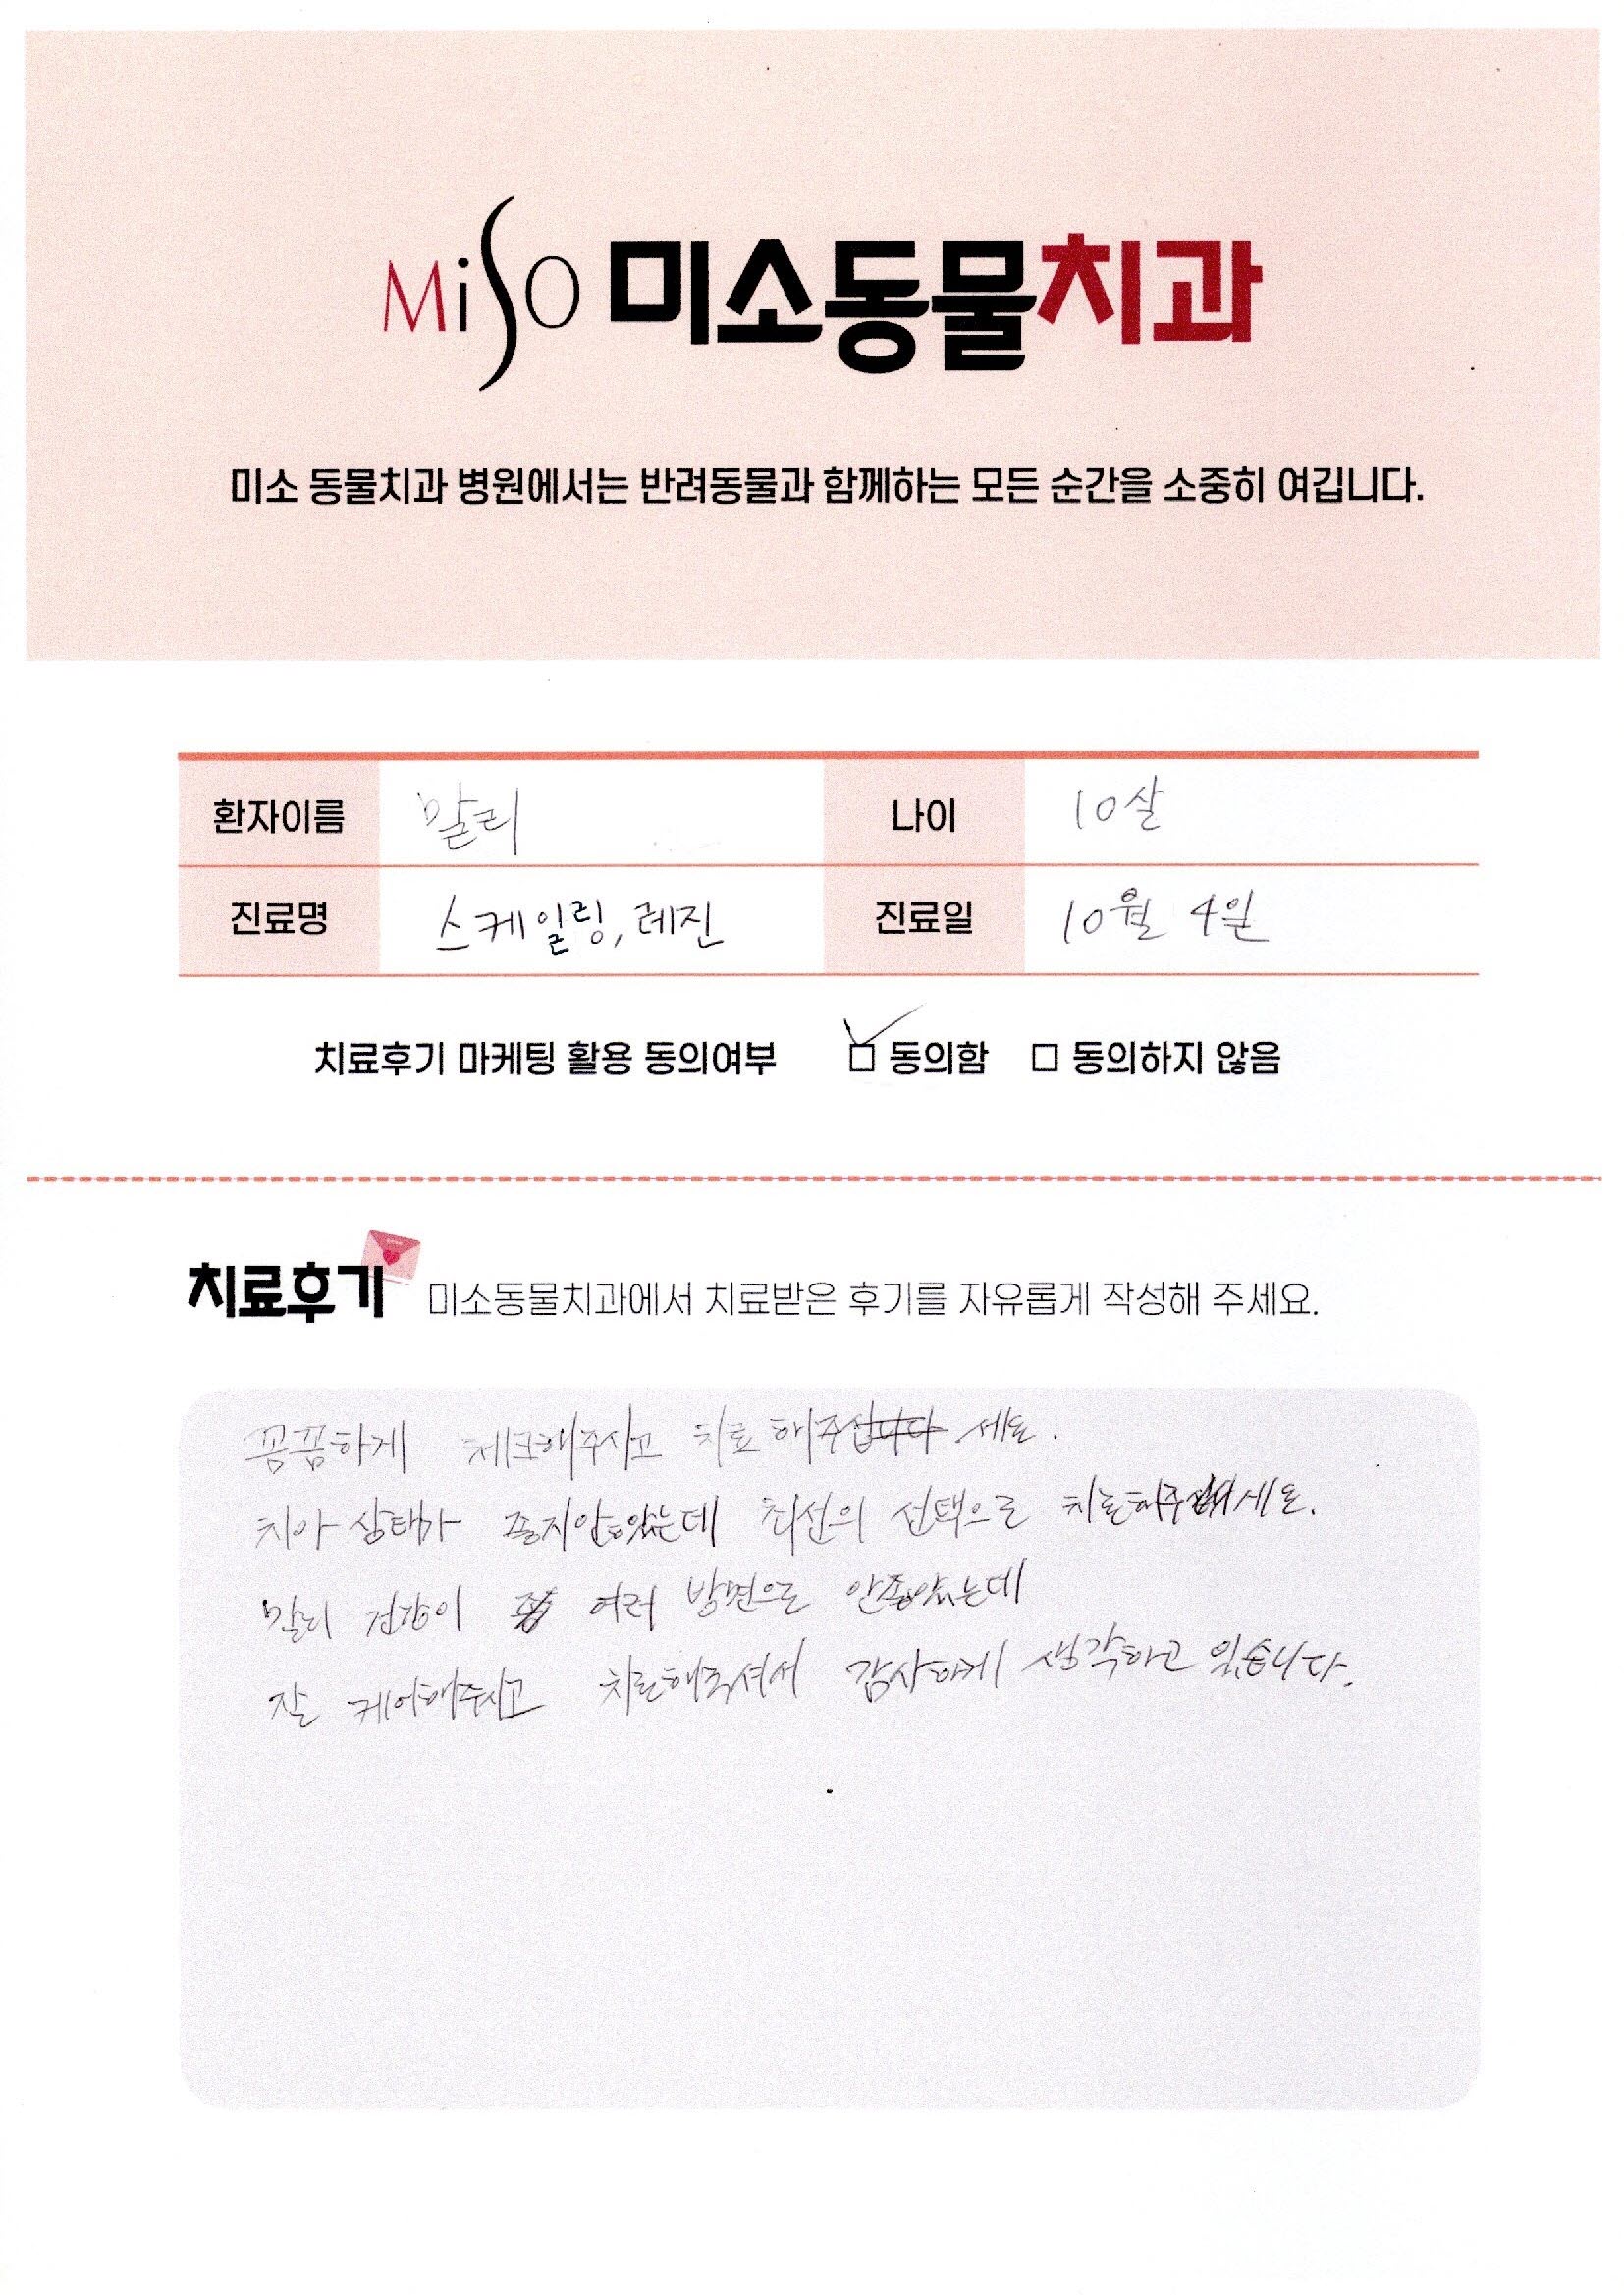 MiSO 미소동물치과
미소 동물치과 병원에서는 반려동물과 함께하는 모든 순간을 소중히 여깁니다.
환자이름 말리 나이 10살
진료명 스케일링, 레진 진료일 10월 4일
치료후기 마케팅 활용 동의여부 동의함 동의하지 않음
치료후기 미소동물치과에서 치료받은 후기를 자유롭게 작성해 주세요.
꼼꼼하게 체크해주시고 치료해주세요.
치아상태가 좋지안았는데 최선의 선택으로 치료해주세요.
말리 건강이 여러 방면으로 안좋았는데
잘 케어해주시고 치료해주셔서 감사하게 생각하고 있습니다.